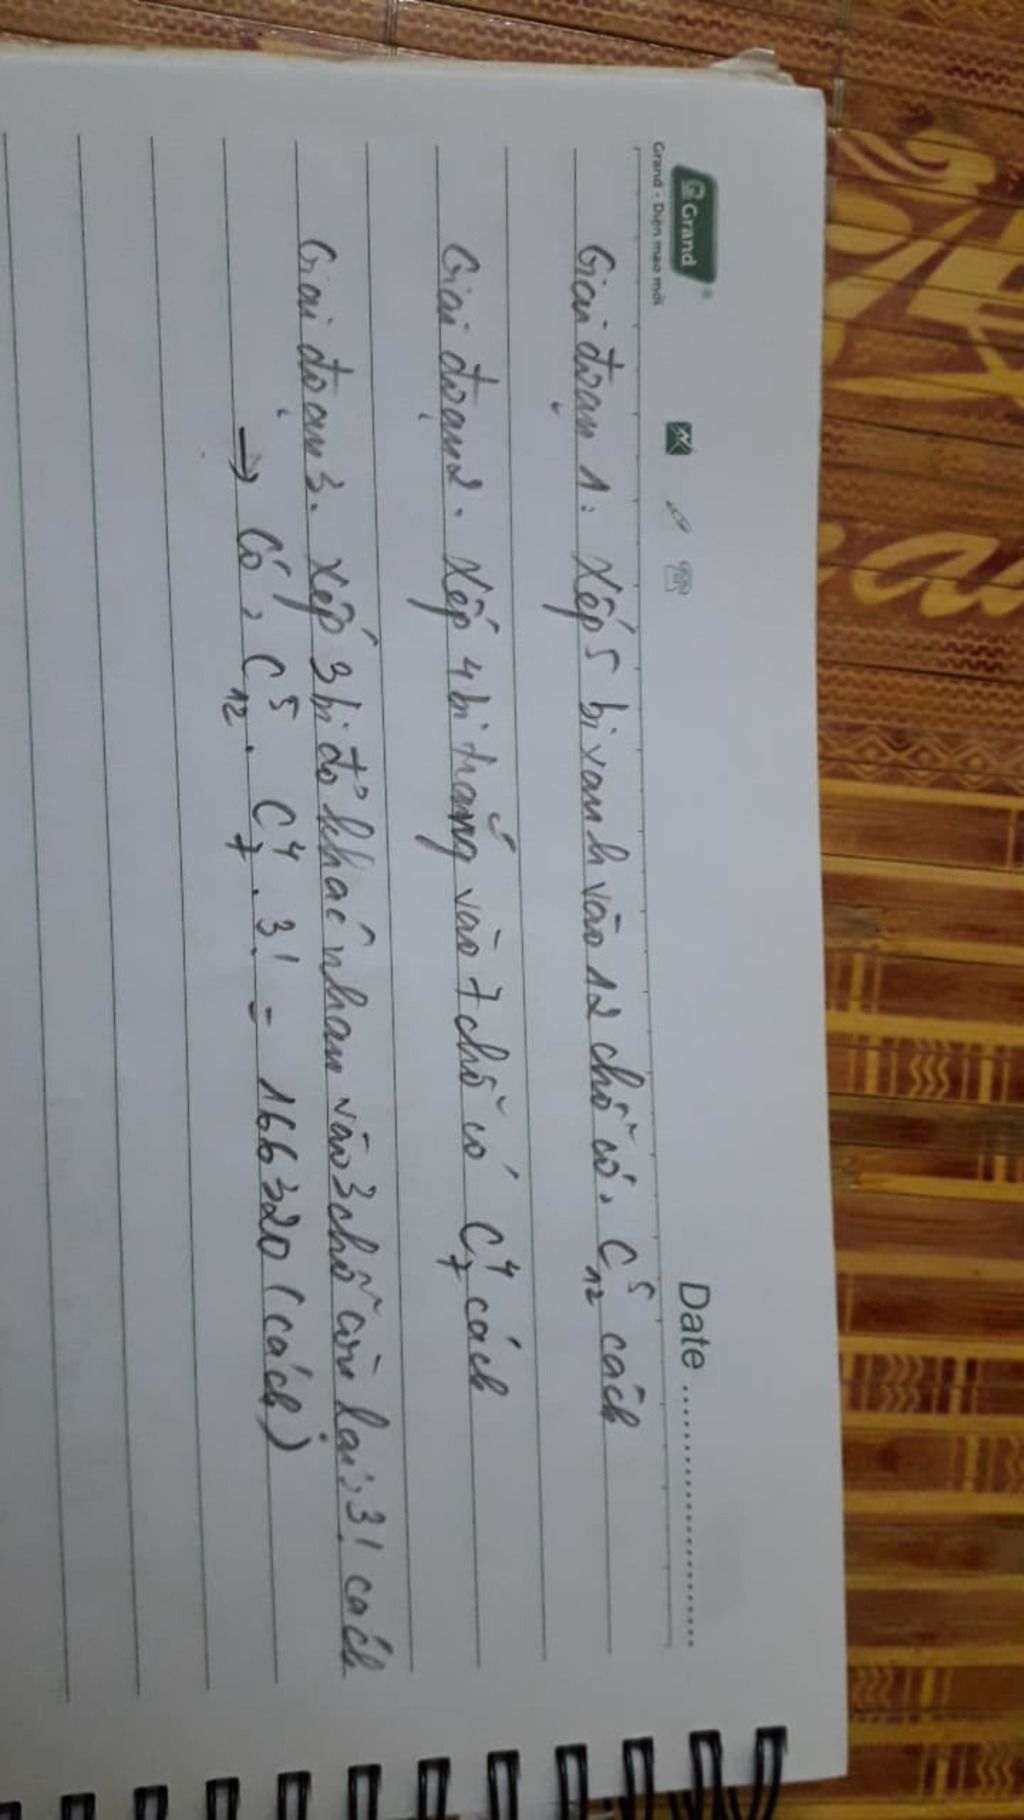 Grand
Grand - Diện mạo mới
Date
Giai đoạn 1: Xếp 5 bi xanh vào 12 chỗ có: C₁₂⁵ cách
Giai đoạn 2: Xếp 4 bi trắng vào 7 chỗ có C₇⁴ cách
Giai đoạn 3: Xếp 3 bi đỏ khác nhau vào 3 chỗ còn lại: 3! cách
→ Có: C₁₂⁵ . C₇⁴ . 3! = 166320 (cách)